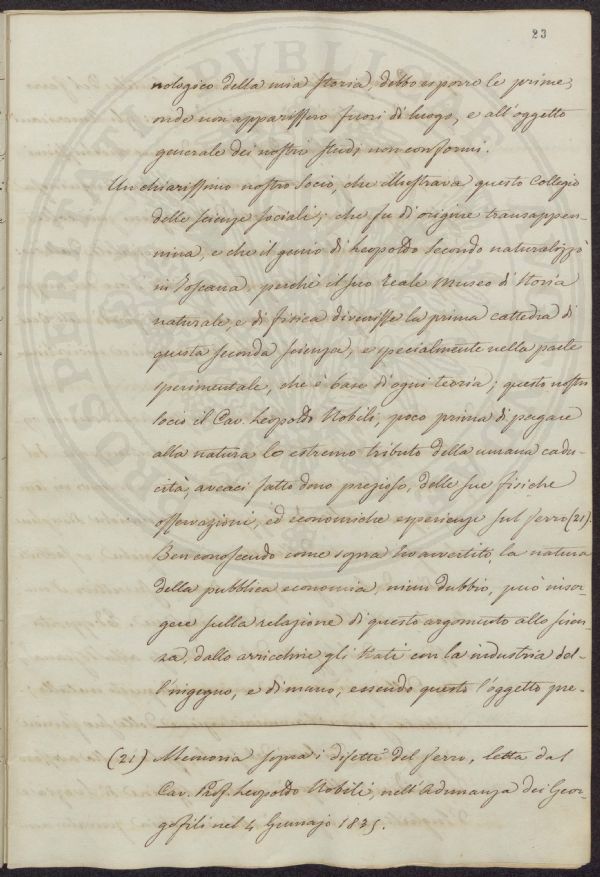 23
nologico della mia storia, debbo esporre le prime,
onde non apparissero fuori di luogo, e all'oggetto
generale dei nostri studj non conformi.
Un chiarissimo nostro socio, che illustrava questo Collegio
delle scienze sociali; che fu di origine transappen-
nina, e che il genio di Leopoldo Secondo naturalizzò
in Toscana, perchè il suo Reale Museo di Storia
naturale, e di fisica divenisse la prima cattedra di
questa seconda scienza, e specialmente nella parte
sperimentale, che è base di ogni teoria; questo nostro
socio il Cav. Leopoldo Nobili, poco prima di pagare
alla natura lo estremo tributo della umana cadu-
cità, aveaci fatto dono prezioso, delle sue fisiche
osservazioni, ed economiche esperienze sul ferro (21).
Ben conoscendo come sopra ho avvertito, la natura
della pubblica economia, niun dubbio, può insor-
gere sulla relazione di questo argomento allo scien-
za, dallo arricchire gli Stati con la industria del-
l'ingegno, e di mano, essendo questo l'oggetto pre-
(21) Memoria sopra i difetti del ferro, letta dal
Cav. Prof. Leopoldo Nobili, nell'Adunanza dei Geor-
gofili nel 4 Gennajo 1835.
PROSPERITATI PVBLICAE